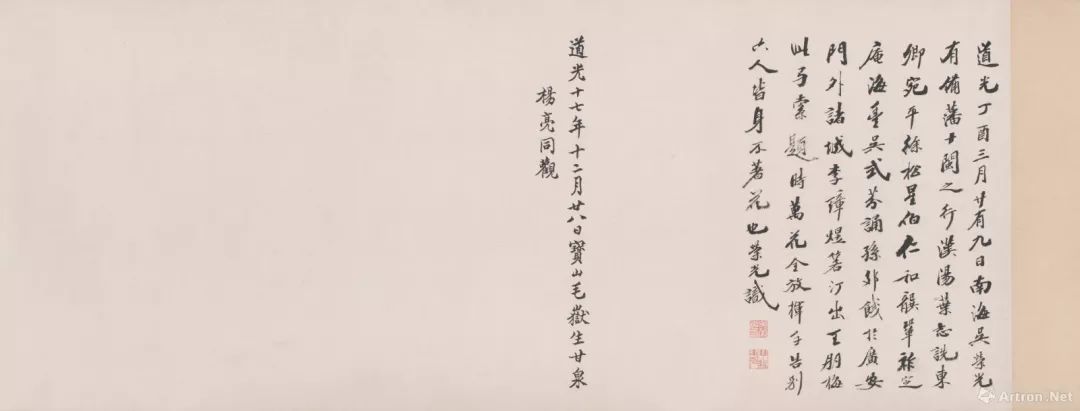 道光丁酉三月廿有九日南海吳榮光
有備藩十閩之行漢陽葉志詵東
卿宛平徐松星伯仁和龔鞏祚定
庵海豐吳式芬誦孫邦餞於廣安
門外諸城李璋煜箸汀出王朋梅
此弓索題時萬花全放揮手告別
六人皆身不著花也榮光識
道光十七年十二月廿八日寶山毛嶽生甘泉
楊亮同觀
Artron.Net